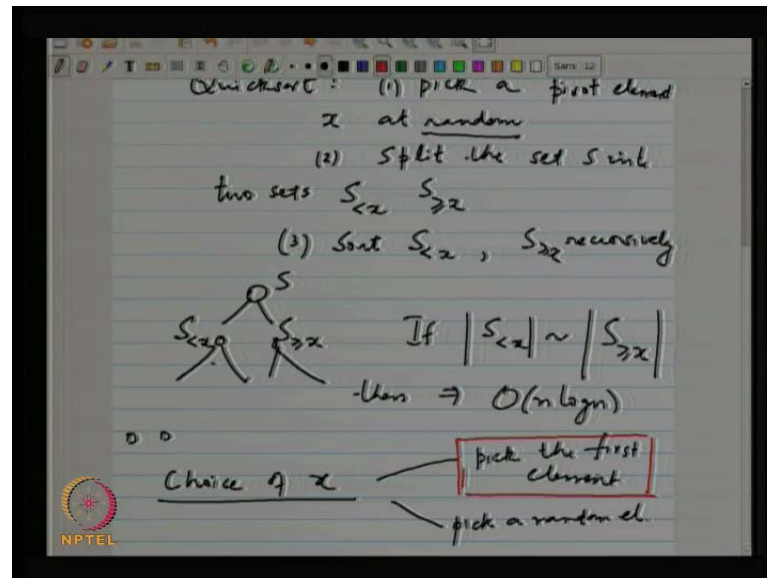 Sans 12
Quicksort: (1) pick a pivot element
x at random
(2) Split the set S into
two sets S<x S⩾x
(3) Sort S<x , S⩾x recursively
S
S<x S⩾x If |S<x| ~ |S⩾x|
then ⇒ O(n log n)
pick the first
element
Choice of x
pick a random el.
NPTEL